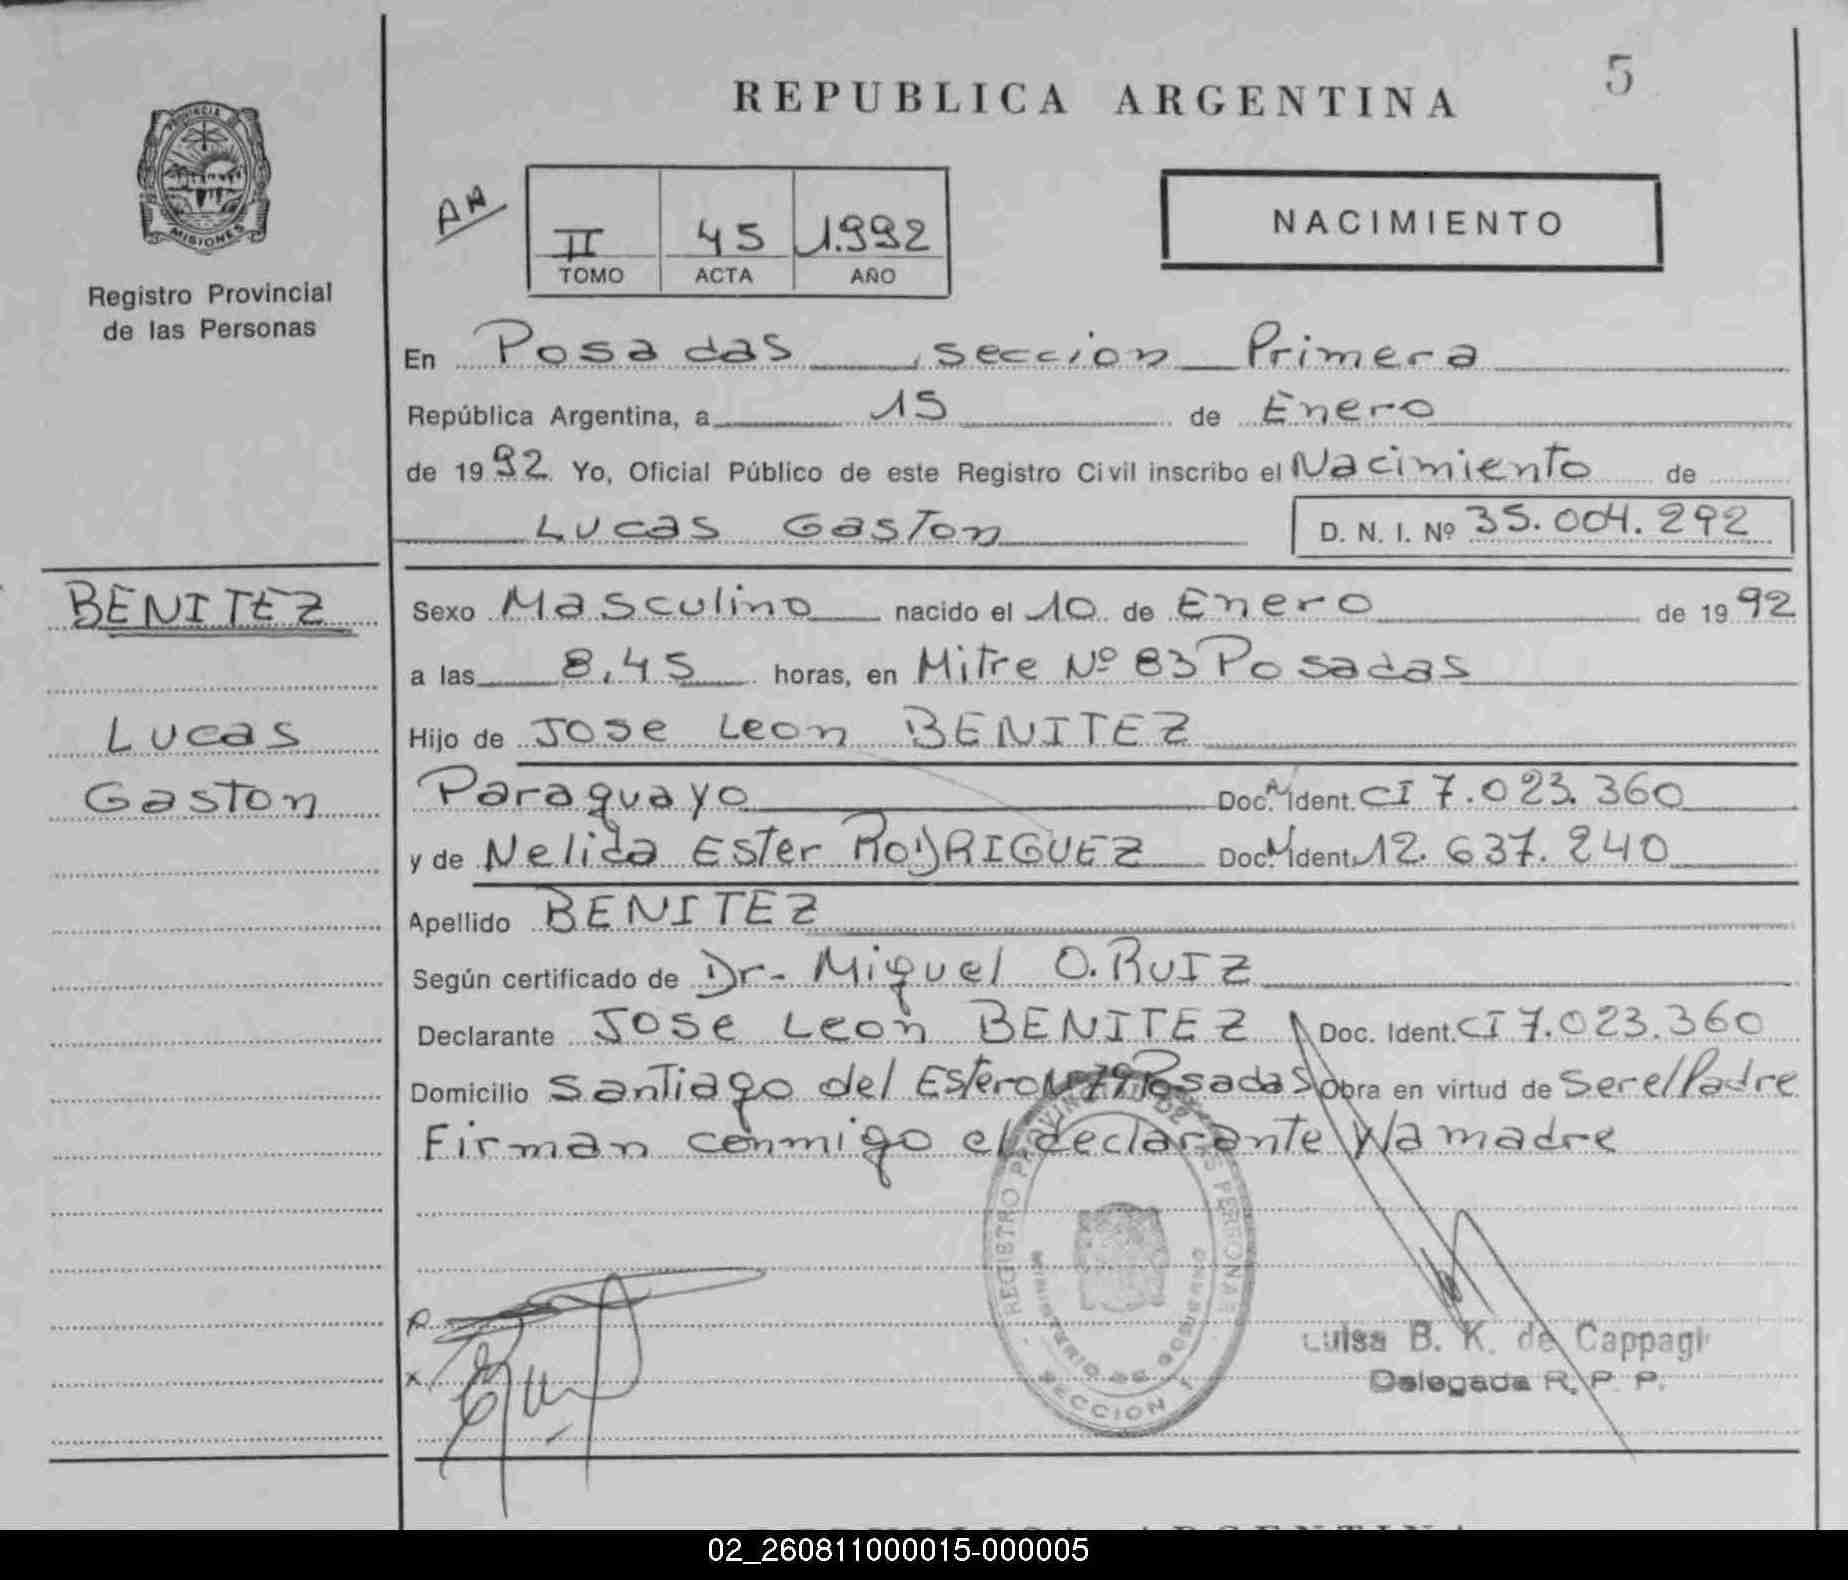 REPUBLICA ARGENTINA
5
PROVINCIA DE
MISIONES
Registro Provincial
de las Personas
AM
II 45 1.992
TOMO ACTA AÑO
NACIMIENTO
En Posadas, seccion Primera
República Argentina, a 15 de Enero
de 1992 Yo, Oficial Público de este Registro Civil inscribo el Nacimiento de
Lucas Gaston D. N. I. Nº 35.004.292
BENITEZ
Lucas
Gaston
Sexo Masculino nacido el 10 de Enero de 1992
a las 8,45 horas, en Mitre Nº 83 Posadas
Hijo de Jose Leon BENITEZ
Paraguayo Doc. Ident. CI 7.023.360
y de Nelida Ester RODRIGUEZ Doc. Ident. 12.637.240
Apellido BENITEZ
Según certificado de Dr- Miguel O. RUIZ
Declarante Jose Leon BENITEZ Doc. Ident. CI 7.023.360
Domicilio Santiago del Estero Posadas Obra en virtud de Ser el Padre
Firman conmigo el declarante y la madre
REGISTRO PROVINCIAL DE LAS PERSONAS
MINISTERIO DE GOBIERNO
SECCION 1
Luisa B. K. de Cappagli
Delegada R. P. P.
REPUBLICA ARGENTINA
02_260811000015-000005